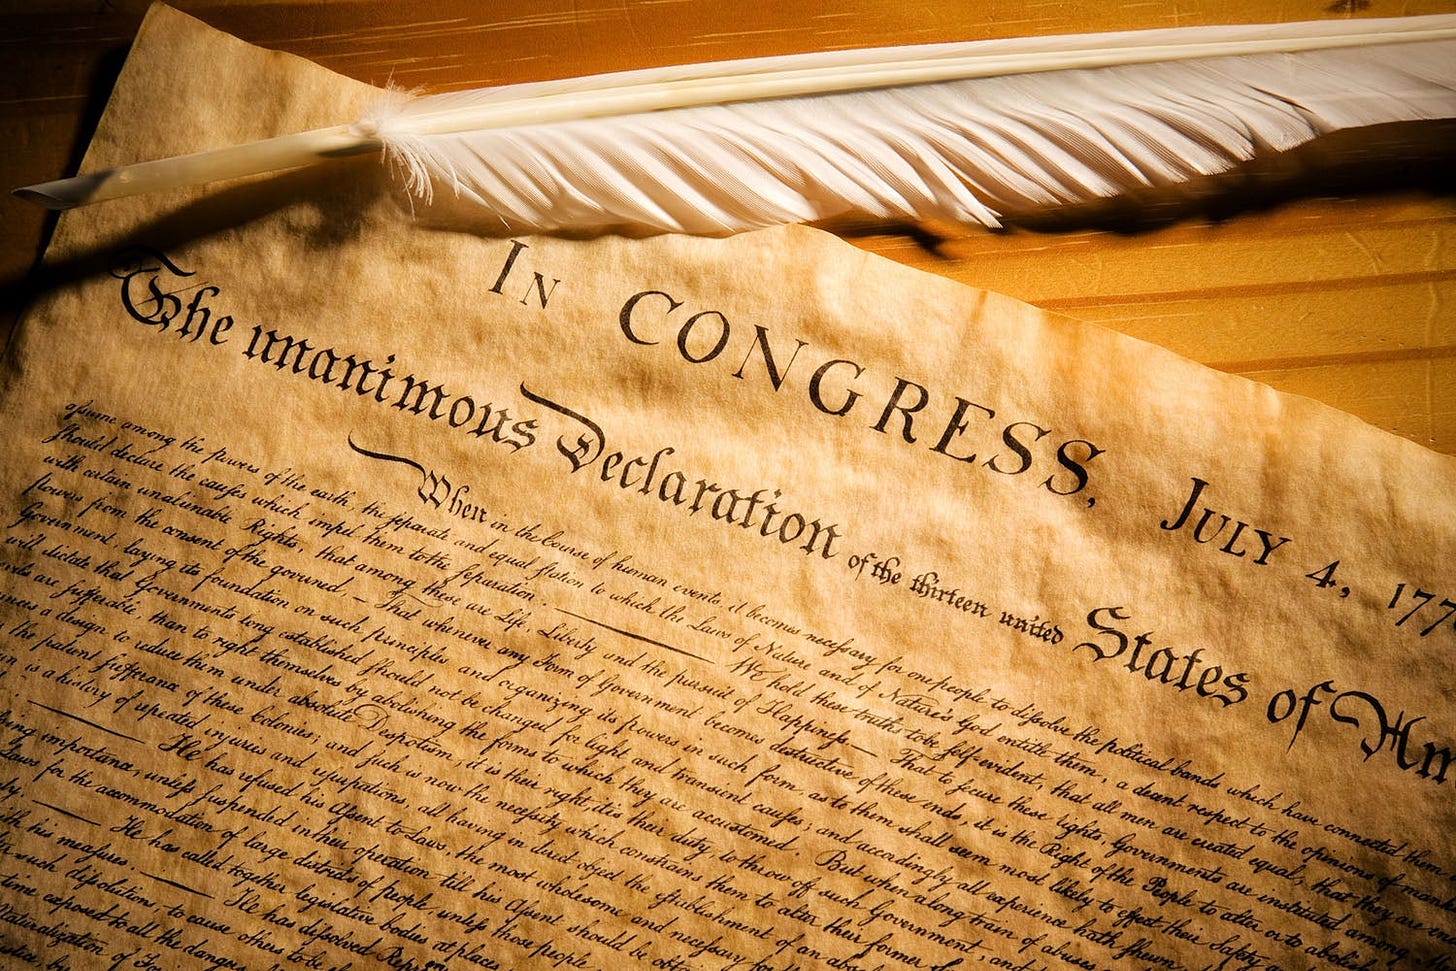 In CONGRESS, July 4, 177
The unanimous Declaration of the thirteen united States of Am
When in the Course of human events, it becomes necessary for one people to dissolve the political bands which have connected them
assume among the powers of the earth, the separate and equal station to which the Laws of Nature and of Nature's God entitle them, a decent respect to the opinions of
should declare the causes which impel them to the separation. —— We hold these truths to be self-evident, that all men are created equal, that they are
with certain unalienable Rights, that among these are Life, Liberty and the pursuit of Happiness.— That to secure these rights, Governments are instituted among
powers from the consent of the governed, — That whenever any Form of Government becomes destructive of these ends, it is the Right of the People to alter or to abolish
Government, laying its foundation on such principles and organizing its powers in such form, as to them shall seem most likely to effect their Safety
will dictate that Governments long established should not be changed for light and transient causes; and accordingly all experience hath shewn
are sufferable, than to right themselves by abolishing the forms to which they are accustomed. But when a long train of abuses
a design to reduce them under absolute Despotism, it is their right, it is their duty, to throw off such Government, and
the patient sufferance of these Colonies; and such is now the necessity which constrains them to alter their former
is a history of repeated injuries and usurpations, all having in direct object the establishment of an
—— He has refused his Assent to Laws, the most wholesome and necessary for
importance, unless suspended in their operation till his Assent should be
Laws for the accommodation of large districts of people, unless those people
—— He has called together legislative bodies at places
his measures. —— He has dissolved
such dissolutions, to cause others to be
exposed to all the dangers
of